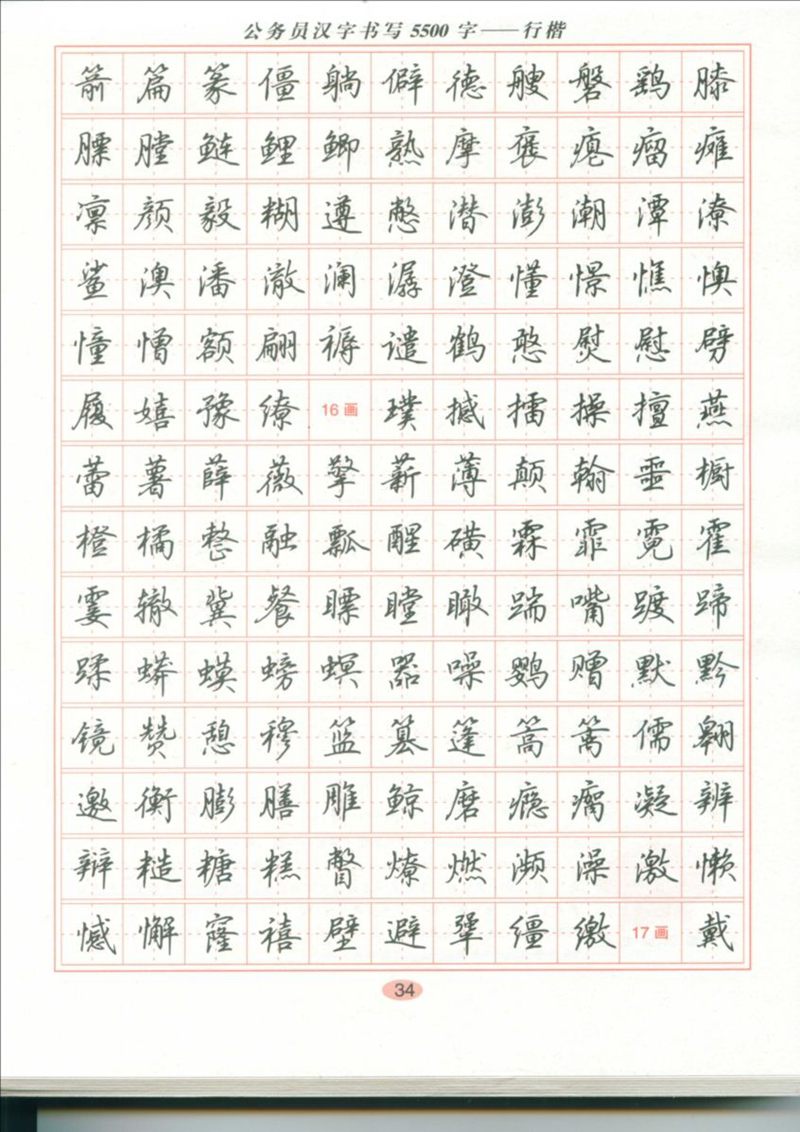 公务员汉字书写5500字——行楷
箭篇篆僵躺僻德艘磐鹞膝
膘膛鲢鲤鲫熟摩褒瘪瘤瘫
凛颜毅糊遵憋潜澎潮潭潦
鲨澳潘澈澜潺澄懂憬憔懊
憧憎额翩褥谴鹤憨熨慰劈
履嬉豫缭16画璞撼擂操擅燕
蕾薯薛薇擎薪薄颠翰噩橱
橙橘整融瓢醒磺霖霏霓霍
霎辙冀餐瞟瞠瞰踹嘴踱蹄
蹂蟒蟆螃螟器噪鹦赠默黔
镜赞憩穆篮篡篷篙篱儒翱
邀衡膨膳雕鲸磨瘾瘸凝辨
辩糙糖糕瞥燎燃濒澡激懒
憾懈窿禧壁避犟缰缴17画戴
34